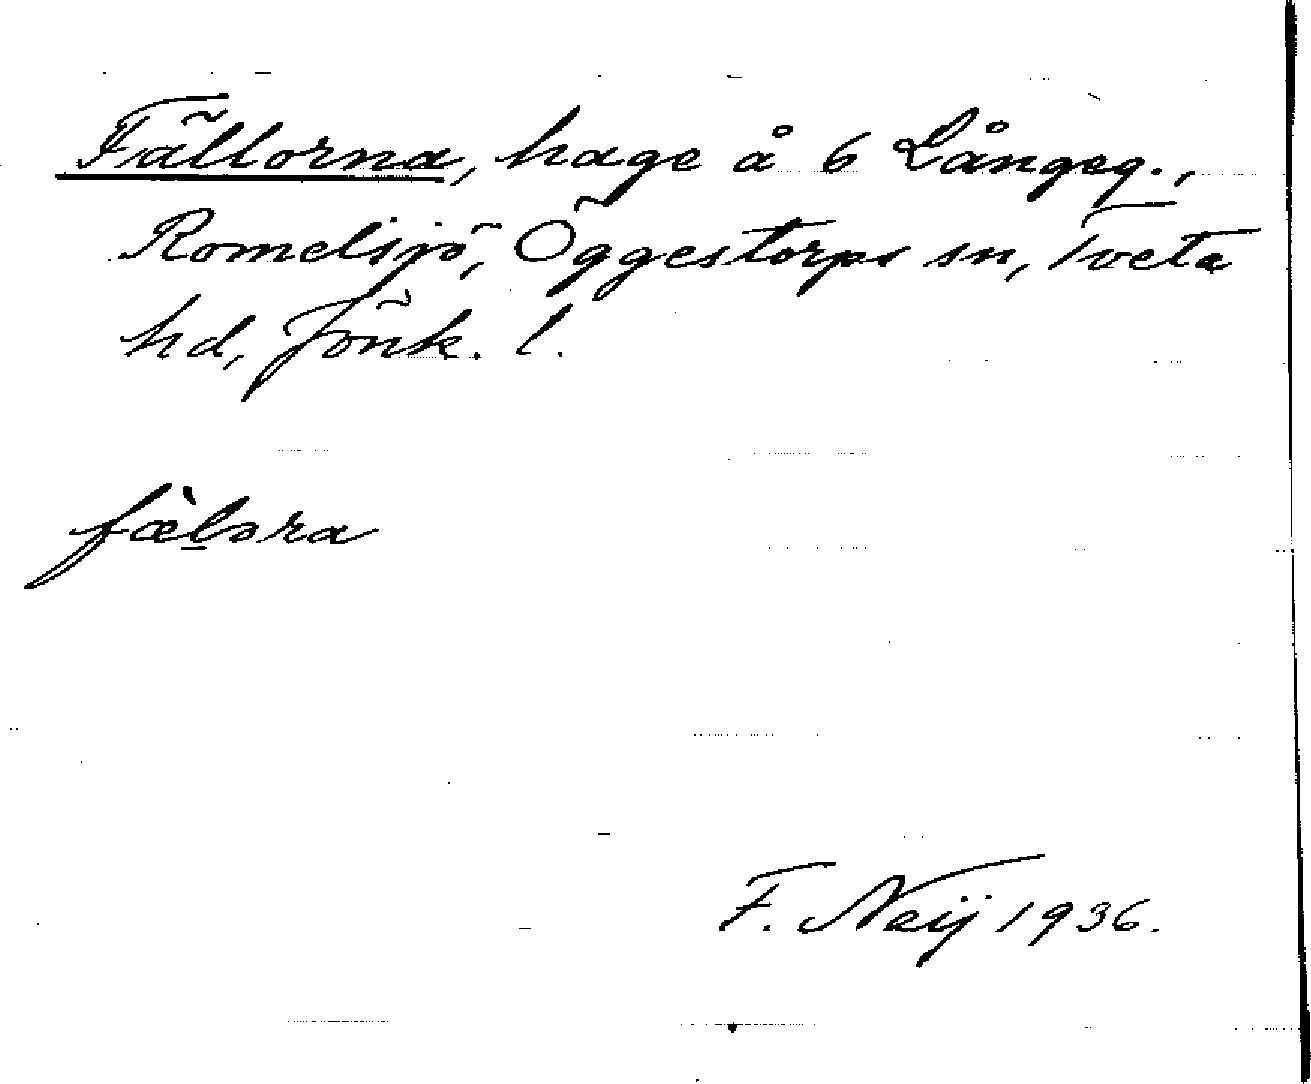 Fällorna, hage å 6 Långeg.,
Romelsjö, Öggestorps sn, Tveta
hd, Jönk. l.
fæ̀l̠ɔra
F. Neij 1936.